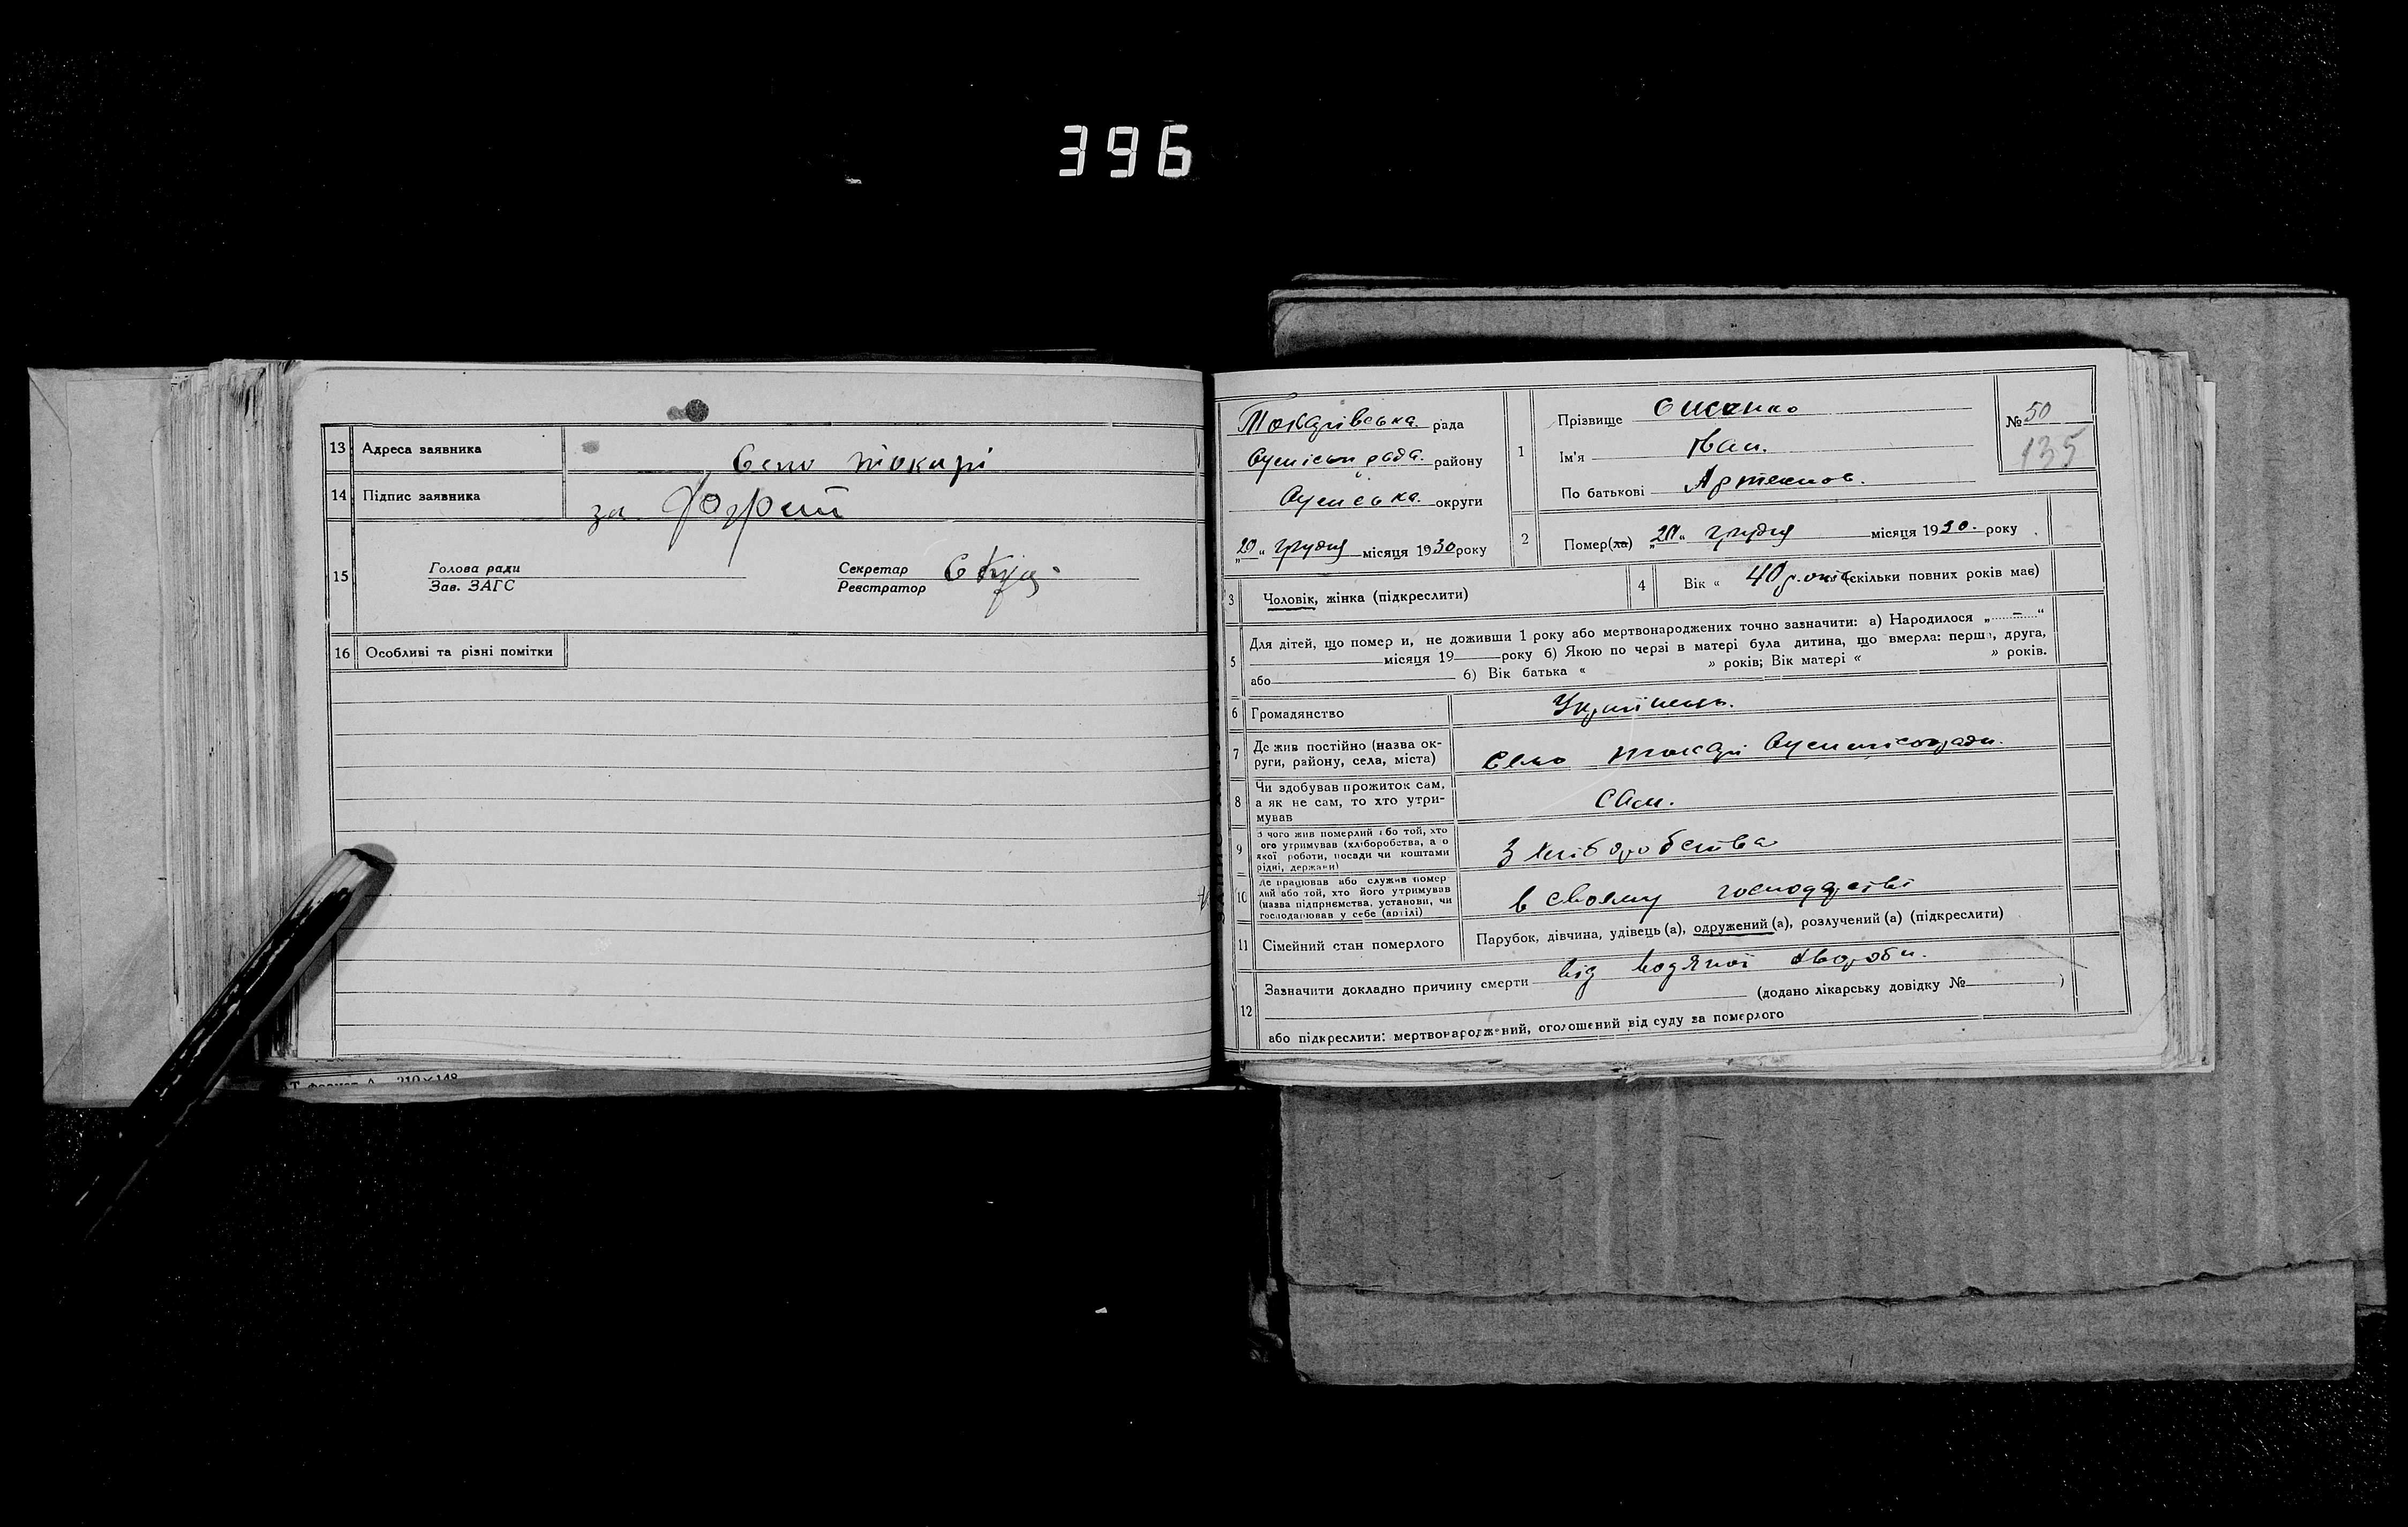 396
13 Адреса заявника село токарі
14 Підпис заявника за
15 Голова ради
Зав. ЗАГС
Секретар
Реєстратор
16 Особливі та різні помітки
210×148
Токарівська рада
району
Сумська округи
„20“ грудня місяця 1930 року
1 Прізвище
Ім'я Іван.
По батькові Артемов.
№ 50
135
2 Помер(ла) „20“ грудня місяця 1930. року
3 Чоловік, жінка (підкреслити)
4 Вік « 40 р. (скільки повних років має)
5 Для дітей, що помер и, не доживши 1 року або мертвонароджених точно зазначити: а) Народилося „ — “
місяця 19 року б) Якою по черзі в матері була дитина, що вмерла: перша, друга,
або б) Вік батька « » років; Вік матері « » років.
6 Громадянство Українець.
7 Де жив постійно (назва ок-
руги, району, села, міста) село токарі
8 Чи здобував прожиток сам,
а як не сам, то хто утри-
мував сам.
9 З чого жив померлий або той, хто
ого утримував (хліборобства, а о
якої роботи, посади чи коштами
рідні, держави) З хліборобства
10 Де працював або служив помер
лий або той, хто його утримував
(назва підприємства, установи, чи
господарював у себе (артілі) в своєму господарстві
11 Сімейний стан померлого Парубок, дівчина, удівець (а), одружений (а), розлучений (а) (підкреслити)
12 Зазначити докладно причину смерти від водяної хвороби.
(додано лікарську довідку № )
або підкреслити: мертвонароджений, оголошений від суду за померлого